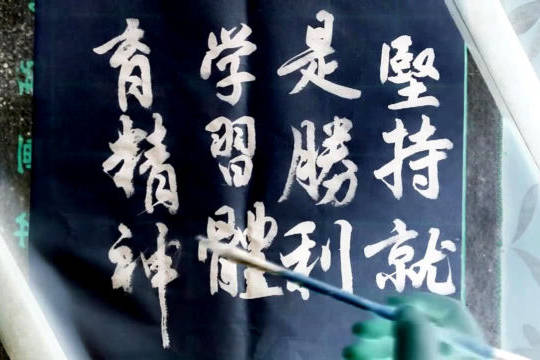 堅持就
是勝利
学習體
育精神